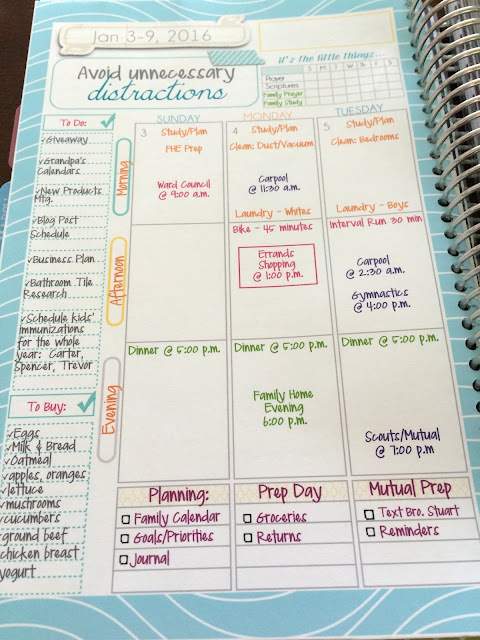 Jan 3-9, 2016
it's the little things...
Avoid unnecessary
distractions
S M T W T F S
Prayer
Scriptures
Family Prayer
Family Study
To Do:
Giveaway
Grandpa's
Calendars
New Products
Mtg.
Blog Post
Schedule
Business Plan
Bathroom Tile
Research
Schedule kids'
immunizations
for the whole
year: Carter,
Spencer, Trevor
To Buy:
Eggs
Milk & Bread
Oatmeal
apples, oranges
lettuce
mushrooms
cucumbers
ground beef
chicken breast
yogurt
Morning
Afternoon
Evening
SUNDAY
3 Study/Plan
FHE Prep
Ward Council
@ 9:00 a.m.
Dinner @ 5:00 p.m.
MONDAY
4 Study/Plan
Clean: Dust/Vacuum
Carpool
@ 11:30 a.m.
Laundry - Whites
Bike - 45 minutes
Errands
Shopping
@ 1:00 p.m.
Dinner @ 5:00 p.m.
Family Home
Evening
6:00 p.m.
TUESDAY
5 Study/Plan
Clean: Bedrooms
Laundry - Boys
Interval Run 30 min
Carpool
@ 2:30 a.m.
Gymnastics
@ 4:00 p.m.
Dinner @ 5:00 p.m.
Scouts/Mutual
@ 7:00 p.m
Planning:
Family Calendar
Goals/Priorities
Journal
Prep Day
Groceries
Returns
Mutual Prep
Text Bro. Stuart
Reminders